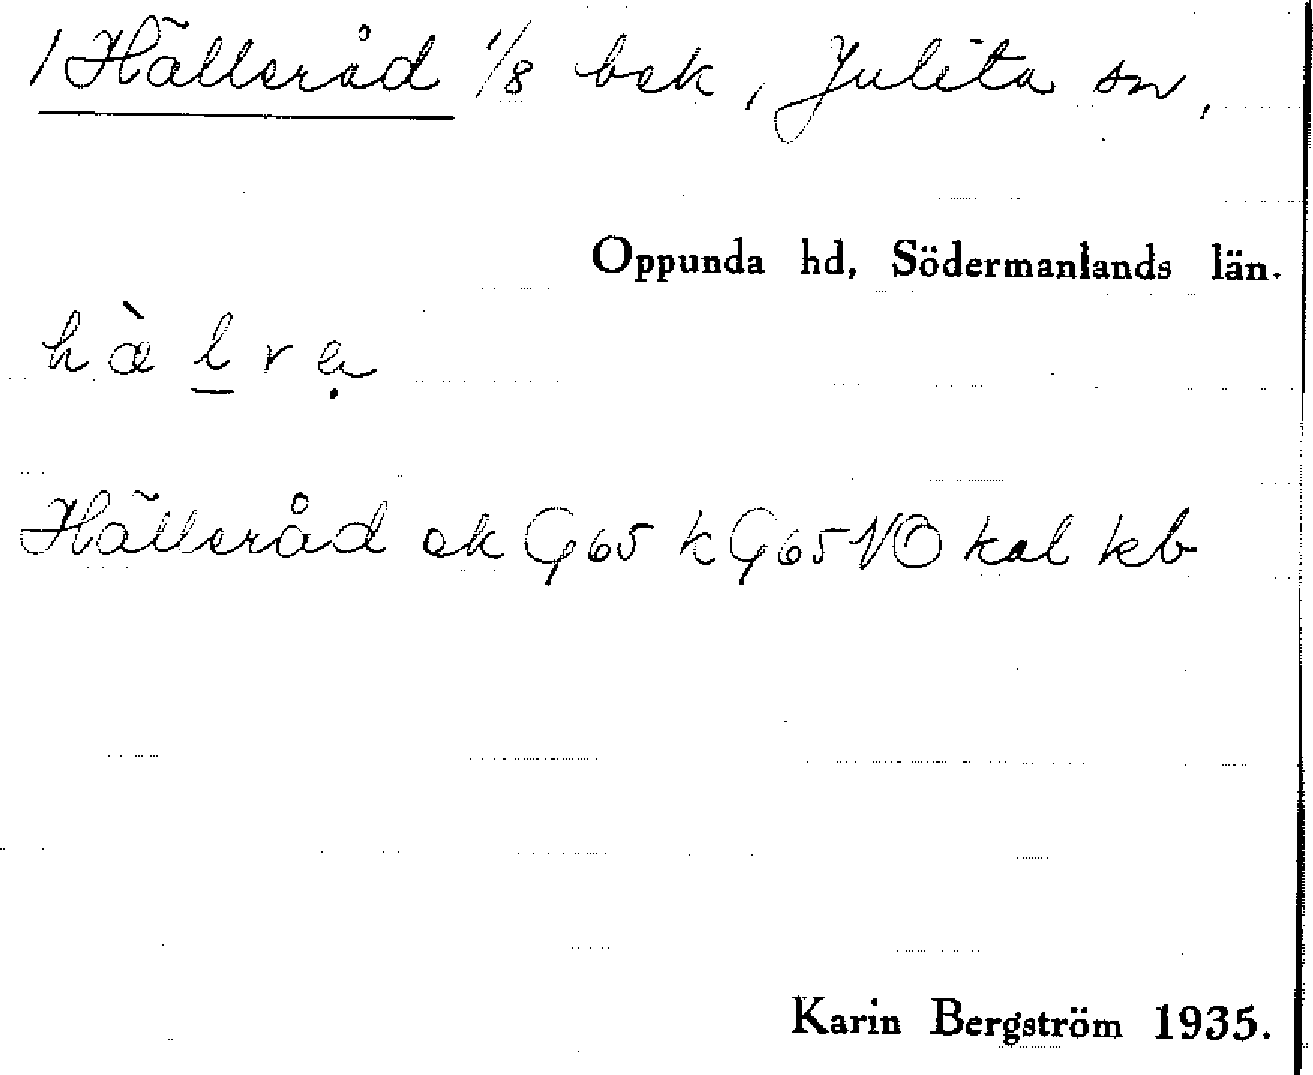 / Hälleråd 1/8 bek, Julita sn,
Oppunda hd, Södermanlands län.
h æ̀ l̲ r ạ
Hälleråd ek G65 k G65 NO kal kb
Karin Bergström 1935.